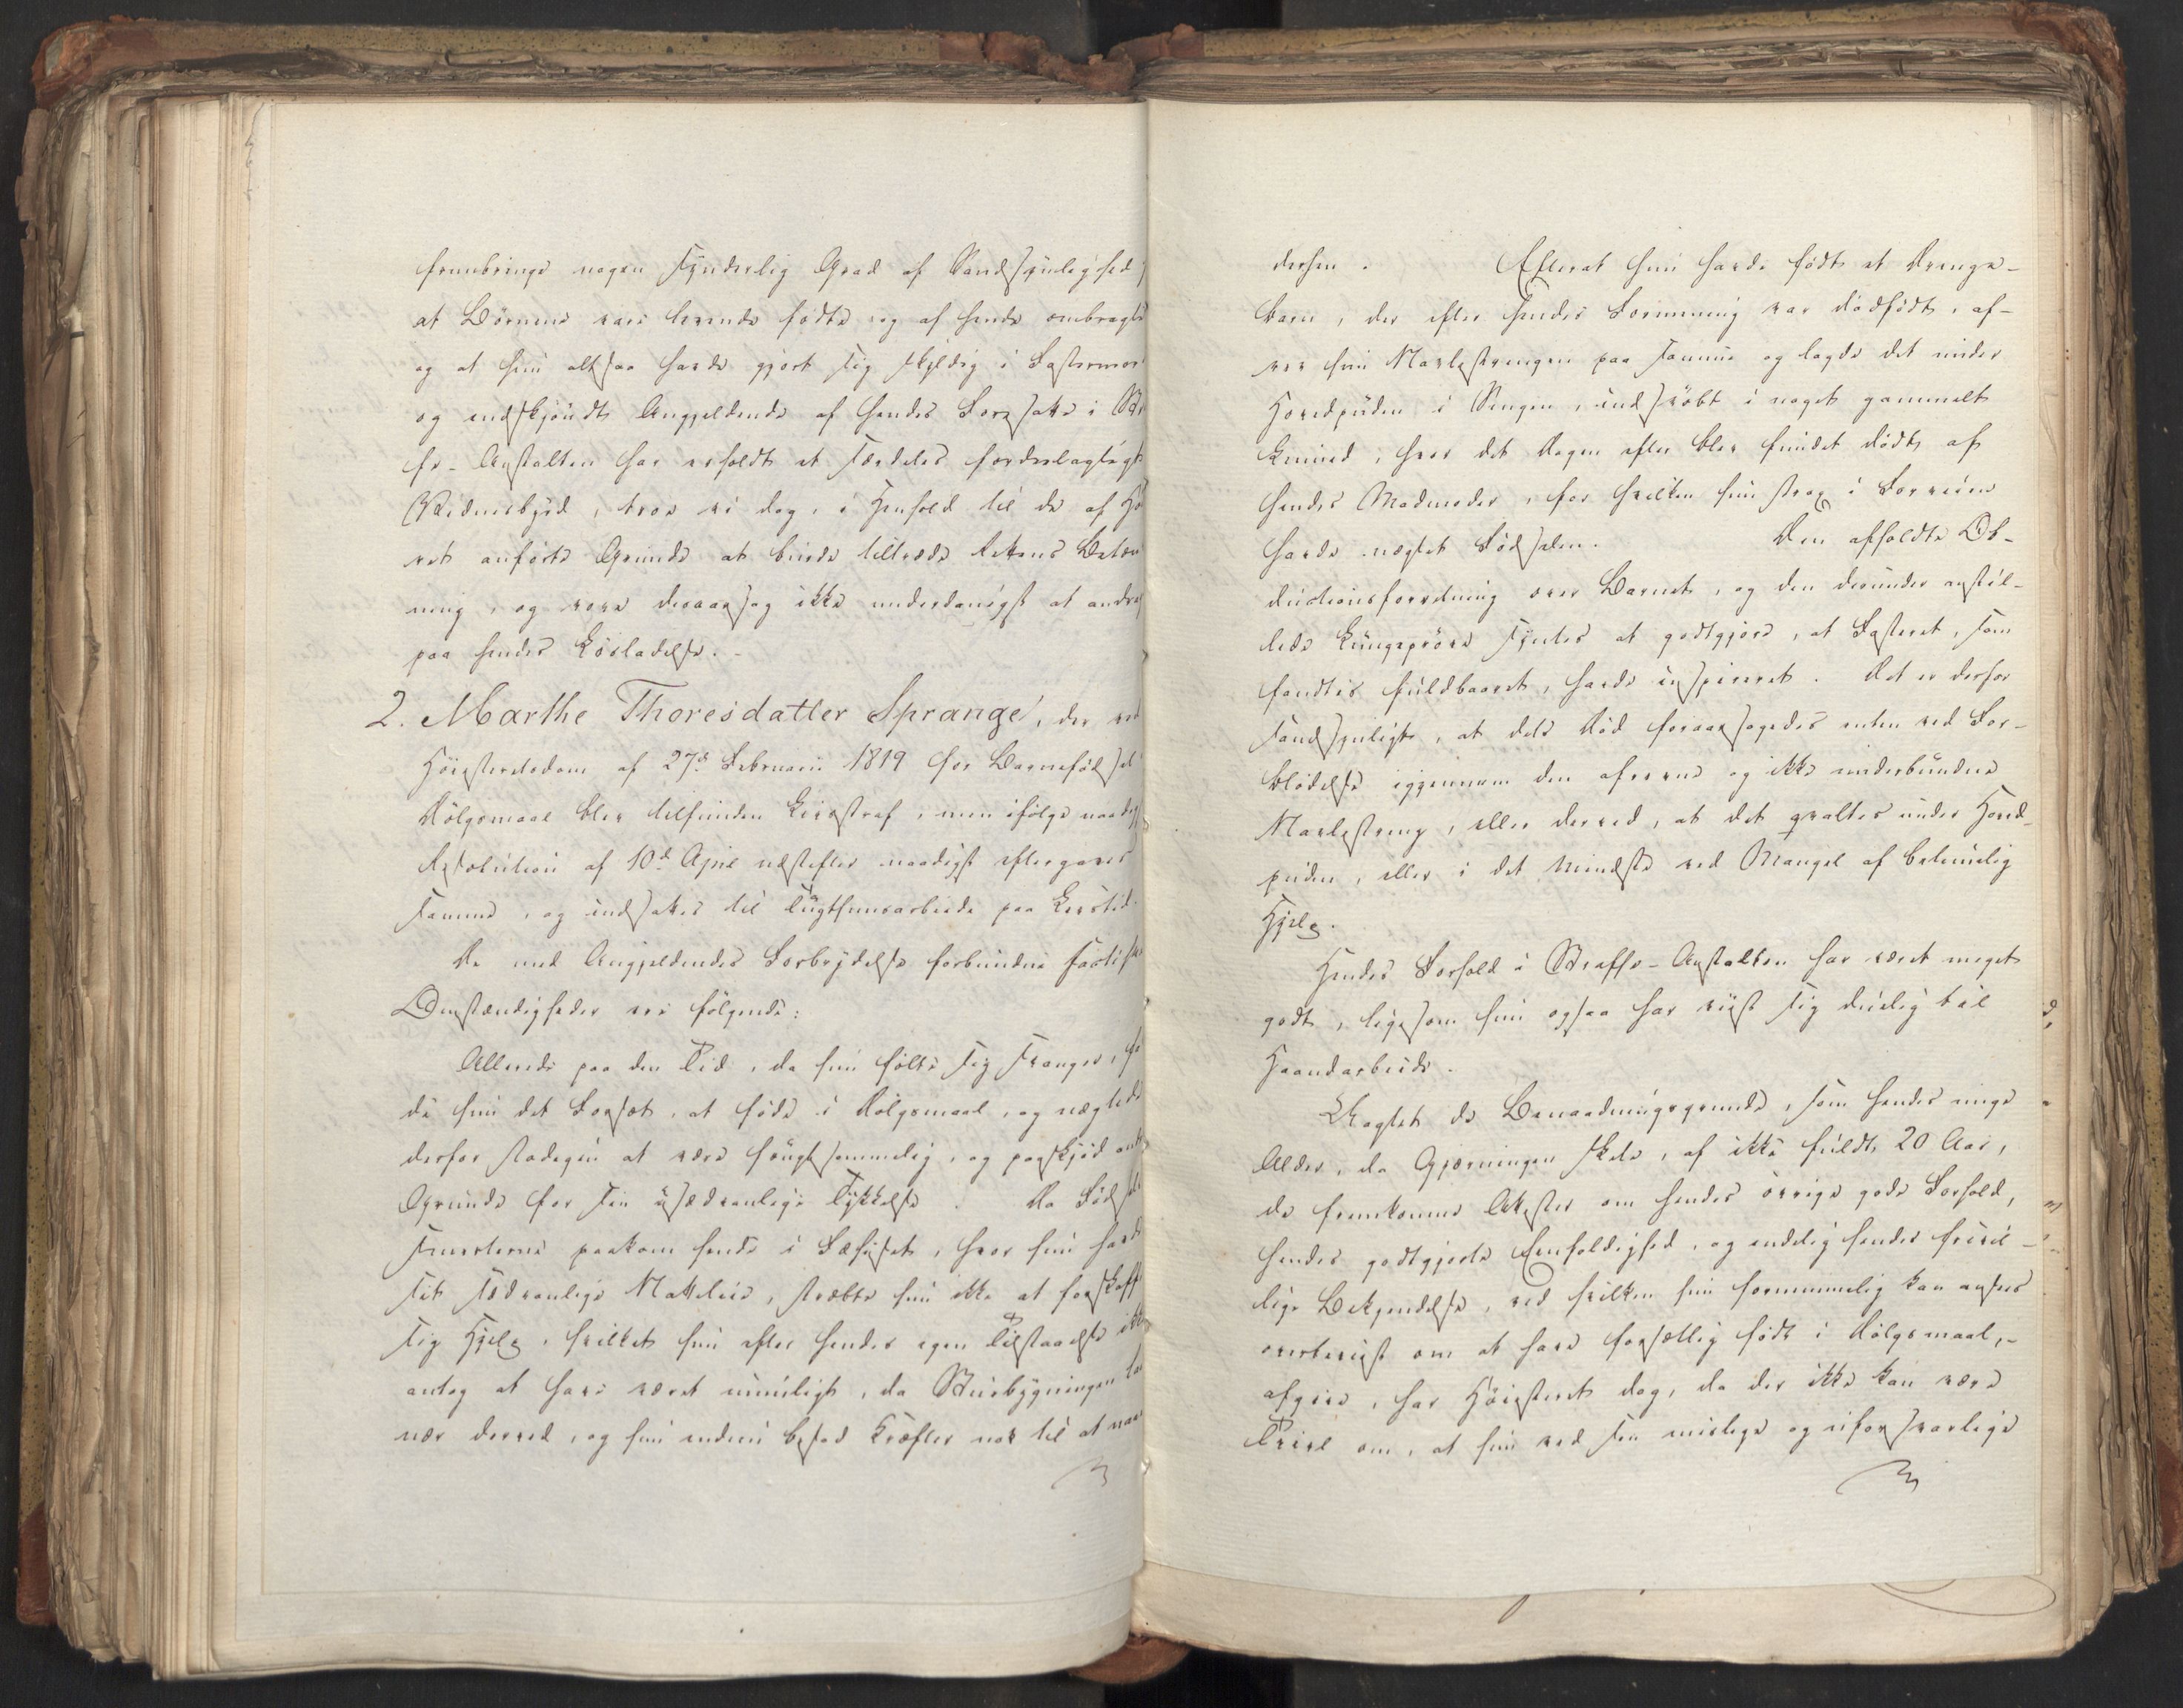 frembringe nogen synderlig Grad af Sandsynlighed
at Børnene vare levende fødte og af hende ombragte
og at hun altsaa havde gjort sig skyldig i Fostermord
og endskjøndt Angjeldende af hendes Foresatte i
fe-Anstalten har erholdt et særdeles fordeelagtigt
Vidnesbyrd, troe vi dog, i Henhold til de af Høie
ret anførte Grunde at burde tiltræde Rettens Betæn
ning, og vove desaarsag ikke underdanigst at andrage
paa hendes Løsladelse.
2. Marthe Thoresdatter Sprange, der ved
Høiesteretsdom af 27de Februarii 1819 for Barnefødsel i
Dølgsmaal blev tilfunden Livsstraf, men ifølge naadigst
Resolution af 10de April næstefter naadigst eftergaves
samme, og indsattes til Tugthuusarbeide paa Livstid.
De med Angjeldendes Forbrydelse forbundne factiske
Omstændigheder ere følgende:
Allerede paa den Tid, da hun følte sig svanger,
de hun det Forsæt, at føde i Dølgsmaal, og nægtede
derfor stadigen at være frugtsommelig, og paaskjød andre
Grunde for sin usædvanlige Tykkelse. Da Fødsels
smerterne paakom hende i Fæhuset, hvor hun havde
sit sædvanlige Natteleie, stræbte hun ikke at forskaffe
sig Hjelp, hvilket hun efter hendes egen Tilstaaelse ikke
antog at have været umuligt, da Stuebygningen laa
nær derved, og hun endnu besad Kræfter nok til at naae
dersen. Efterat hun havde født et Drenge-
barn, der efter hendes Formening var dødfødt, af-
rev hun Navlestrengen paa samme og lagde det under
Hovedpuden i Sengen, indsvøbt i noget gammelt
Linned, hvor det Dagen efter blev fundet dødt af
hendes Madmoder, for hvilken hun strax i Forveien
havde nægtet Fødselen. Den afholdte Ob-
ductionsforretning over Barnet, og den derunder anstil-
lede Lungeprøve syntes at godtgjøre, at Fosteret, som
fandtes fuldbaaret, havde inspireret. Det er derfor
sandsynligt, at dets Død foraarsagedes enten ved For-
blødelse igjennem den afrevne og ikke underbundne
Navlestreng, eller derved, at det qvaltes under Hoved-
puden, eller i det mindste ved Mangel af betimelig
Hjelp.
Hendes Forhold i Straffe-Anstalten har været meget
godt, ligesom hun ogsaa har viist sig duelig til
Haandarbeide.
Uagtet de Benaadningsgrunde, som hendes unge
Alder, da Gjerningen skete, af ikke fuldt 20 Aar,
de fremkomne Attester om hendes øvrige gode Forhold,
hendes godtgjorte Eenfoldighed, og endelig hendes frivil-
lige Bekjendelse, ved hvilken hun fornemmelig kan ansees
overbeviist om at have forsætlig født i Dølgsmaal,-
afgive, har Høiesteret dog, da der ikke kan være
Tvivl om, at hun ved sin mislige og uforsvarlige